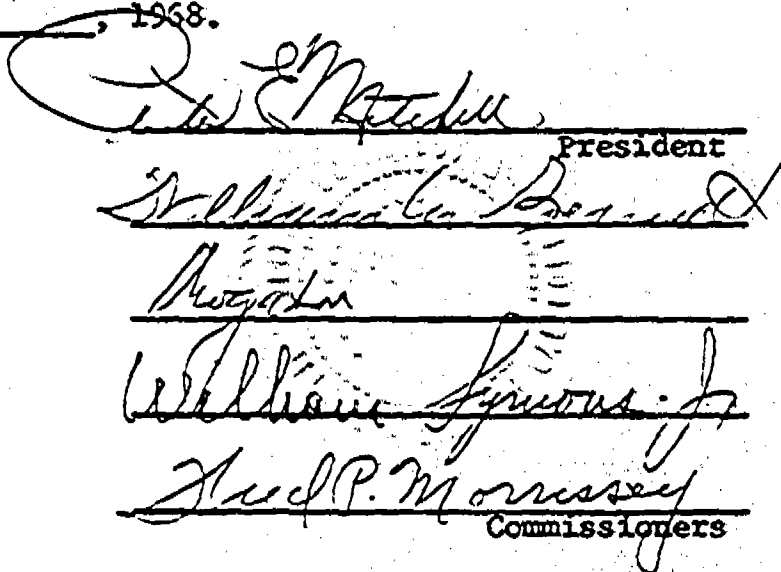 , 1968.
Peter E Mitchell
President
William M. Bennett
William Symons. Jr
Fred P. Morrissey
Commissioners